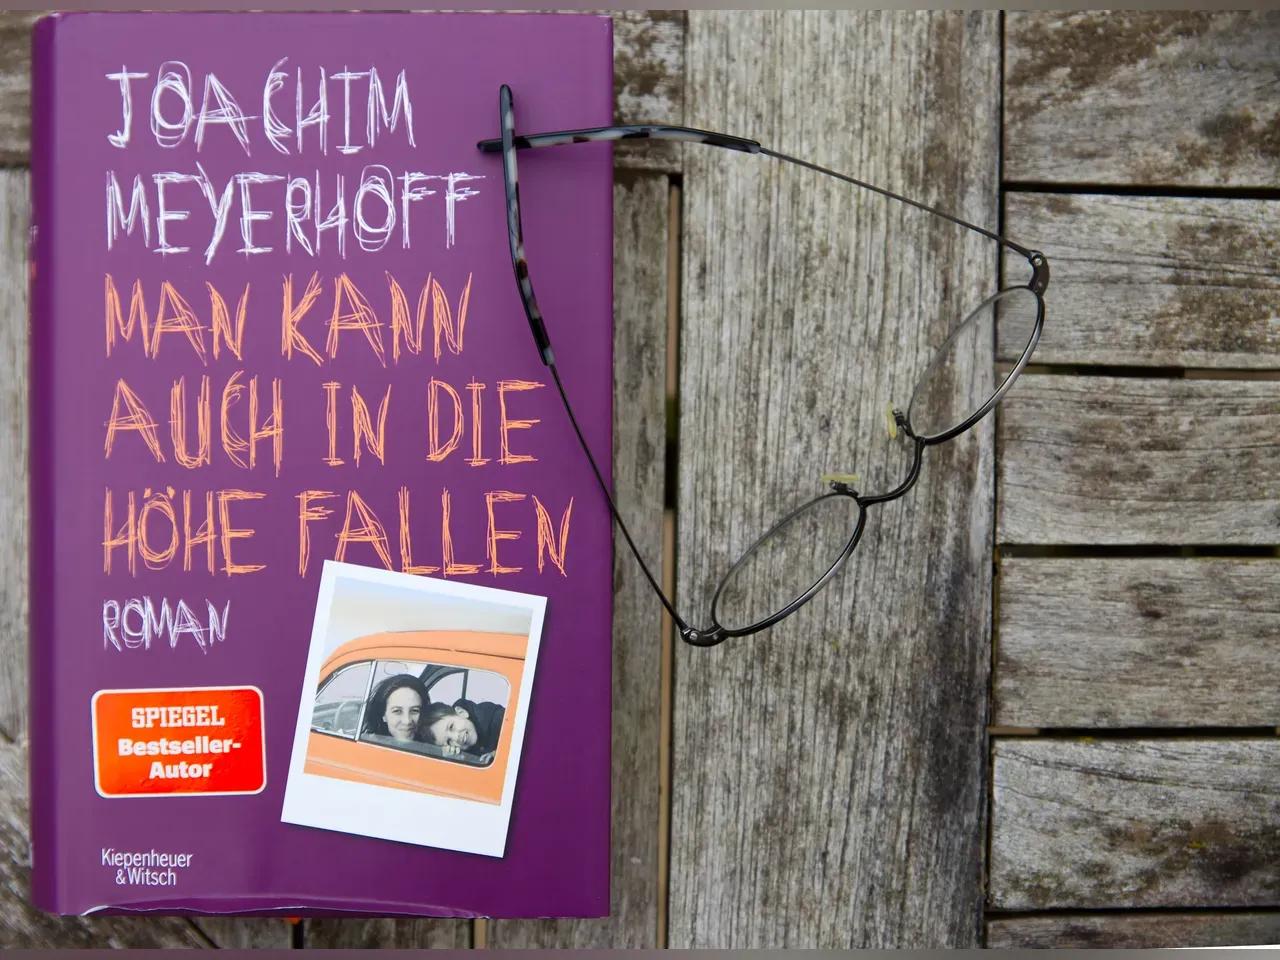 JOACHIM
MEYERHOFF
MAN KANN
AUCH IN DIE
HÖHE FALLEN
ROMAN
SPIEGEL
Bestseller-
Autor
Kiepenheuer
&Witsch